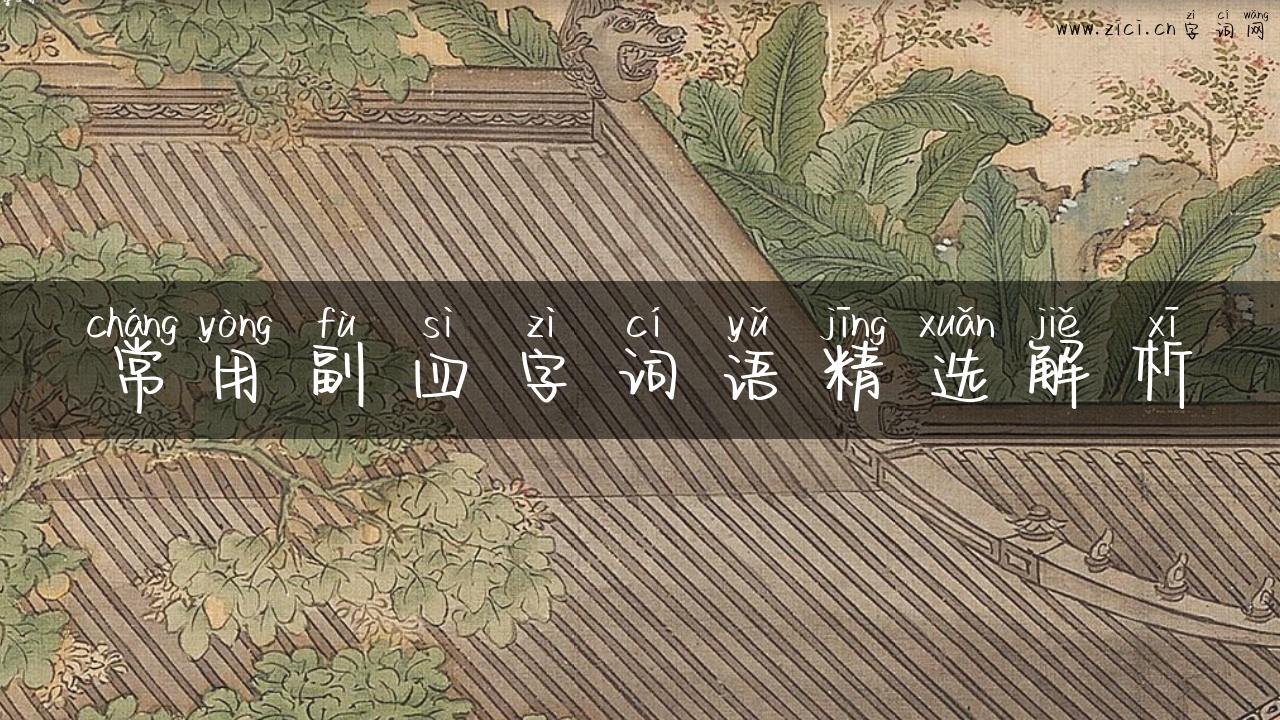 www.zici.cn 字词网
zì cí wǎng
cháng yòng fù sì zì cí yǔ jīng xuǎn jiě xī
常用副四字词语精选解析